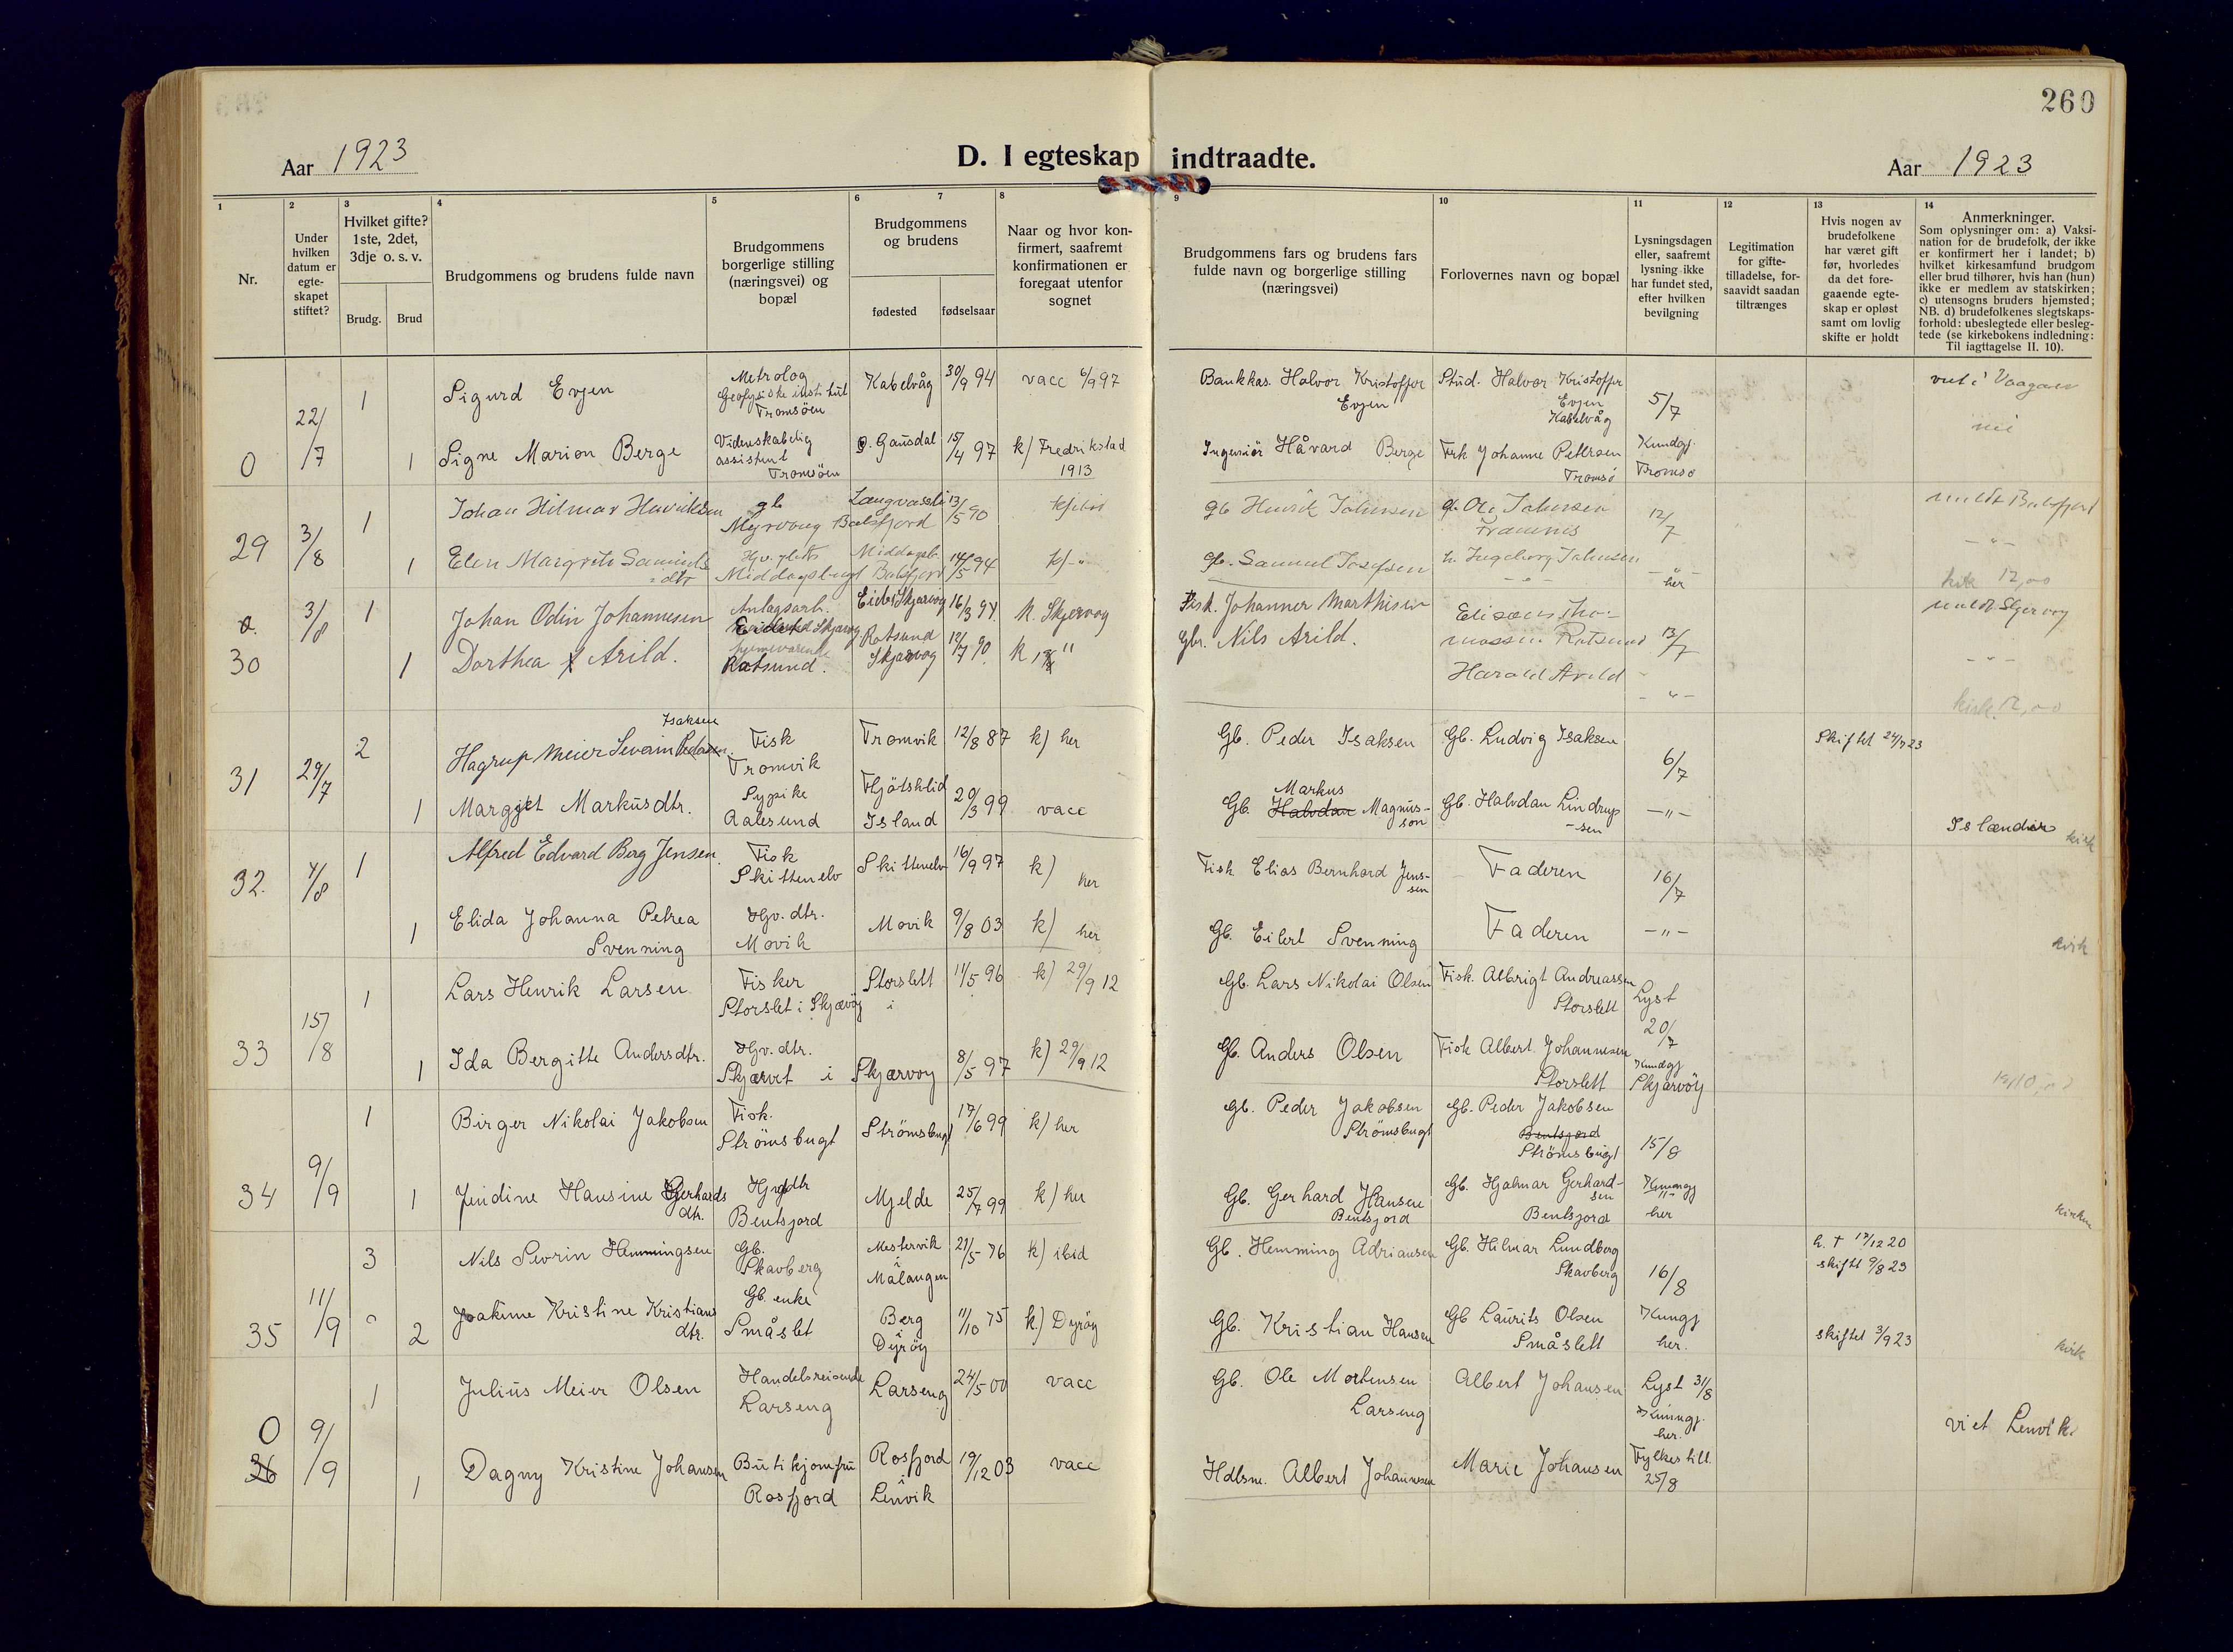 260
Aar 1923
D. I egteskap indtraadte.
Aar 1923
1
2
3
4
5
6
7
8
9
10
11
12
13
14
Nr.
Under hvilken datum er egte-skapet stiftet?
Hvilket gifte? 1ste, 2det, 3dje o. s. v.
Brudg.
Brud
Brudgommens og brudens fulde navn
Brudgommens borgerlige stilling (næringsvei) og bopæl
Brudgommens og brudens
fødested
fødselsaar
Naar og hvor kon-firmert, saafremt konfirmationen er foregaat utenfor sognet
Brudgommens fars og brudens fars fulde navn og borgerlige stilling (næringsvei)
Forlovernes navn og bopæl
Lysningsdagen eller, saafremt lysning ikke har fundet sted, efter hvilken bevilgning
Legitimation for gifte-tilladelse, for-saavidt saadan tiltrænges
Hvis nogen av brudefolkene har været gift før, hvorledes da det fore-gaaende egte-skap er opløst samt om lovlig skifte er holdt
Anmerkninger.
Som oplysninger om: a) Vaksi-nation for de brudefolk, der ikke er konfirmert her i landet; b) hvilket kirkesamfund brudgom eller brud tilhører, hvis han (hun) ikke er medlem av statskirken; c) utensogns bruders hjemsted; NB. d) brudefolkenes slegtskaps-forhold: ubeslegtede eller besleg-tede (se kirkebokens indledning: Til iagttagelse II. 10).
0 22/7 1 Sigurd Evjen Metrolog Geofysiske institut Tromsöen Kabelvåg 30/9 94 vacc 6/9 97 Bankkas. Halvor Kristoffer Evjen Stud. Halvor Kristoffer Evjen Kabelvåg 5/7
1 Signe Marion Berge Videnskabelig assistent Tromsöen Ø. Gausdal 15/4 97 k) Fredrikstad 1913 Ingeniör Håvard Berge Frk Johanne Petersen Tromsö Kundgj. Tromsö
29 3/8 1 Johan Hilmar Henriksen gb Myrvang Balsfjord Langvasli 13/5 90 gb Henrik Johnsen gb. Ole Johnsen 12/7
1 Elen Margrith Samuels-dtr Middagsbugt Balsfjord 14/5 94 gb. Samuel Josefsen h. Ingeborg Johnsen -"- her
kirk 12,00
0. 30 3/8 1 Johan Odin Johannesen Anlagsarb. Eidet Skjærvøy Eidet Skjærvøy 16/3 94. k. Skjervøy Fisk. Johannes Marthisen Elisæus Tho-massen Rotsund 13/7
1 Dorthea Arild. hjemmeværende Rotsund. Rotsund Skjærvøy 12/7 90. k " Gbr. Nils Arild. Harald Arild -"-
-"-
kirk. 12,00
31 29/7 2 Hagrup Meier Sevrin Pedersen. Isaksen Fisk Tromvik Tromvik 12/8 87 k) her Gb. Peder Isaksen Gb. Ludvig Isaksen 6/7 Skiftet 24/7 23
1 Margjet Markusdtr. Sypike Aalesund Island 20/3 99 vacc Gb. Halvdan Markus Magnus-son Gb. Halvdan Lindrup-sen -"- Islænder kirk
32. 4/8 1 Alfred Edvard Berg Jensen. Fisk Skittenelv Skittenelv 16/9 97 k) her Fisk Elias Bernhard Jens-sen Faderen 16/7
1 Elida Johanna Petrea Svenning Hgv. dtr. Movik Movik 9/8 03 k) her Gb. Eilert Svenning Faderen -"- kirk
33 15/8 1 Lars Henrik Larsen Fisker Storslet i Skjærvöy Storslett i 11/5 96 k) 29/9 12 Gb. Lars Nikolai Olsen Fisk. Albrigt Andreassen Storslett Lyst 20/7
1 Ida Bergitte Andersdtr. Hgv. dtr. Skjæret i Skjærvoy 8/5 97 k) 29/9 12 Gb. Anders Olsen Fisk Albert Johannesen Storslett Kundgj Skjærvöy
34 9/9 1 Birger Nikolai Jakobsen Fisk. Strömsbugt Strömsbugt 17/6 99 k) her Gb. Peder Jakobsen Strömsbugt Gb. Peder Jakobsen Bentsjord Strömsbugt 15/8
1 Jendine Hansine Gerhards dtr. Hgvdtr Bentsjord Mjelde 25/7 99 k) her Gb. Gerhard Hansen Bentsjord Gb. Hjalmar Gerhard-sen Bentsjord her kirken
35 11/9 3 Nils Sevrin Hemmingsen Gb. Skavberg Mestervik i Målangen 21/5 76 k) ibid Gb. Hemming Adriansen Gb. Hilmar Lundberg Skavberg 16/8 h. † 17/12 20 skiftet 9/8 23
2 Joakime Kristine Kristians dtr. Gb. enke Småslet Berg i Dyröy 11/10 75 k.) Dyröy Gb. Kristian Hansen Gb Laurits Olsen Småslett Kungj her. skiftet 3/9 23 kirk
0 36 9/9 1 Julius Meier Olsen Handelsreisende Larseng Larseng 24/5 00 vacc Gb. Ole Mortensen Larseng Albert Johansen Lyst 31/8 Kungj. her.
viet Lenvik
1 Dagny Kristine Johansen Butikjomfru Rosfjord Rosfjord i Lenvik 19/12 03 vacc Hdlsm. Albert Johannesen Marie Johansen Fylkestill. 25/8